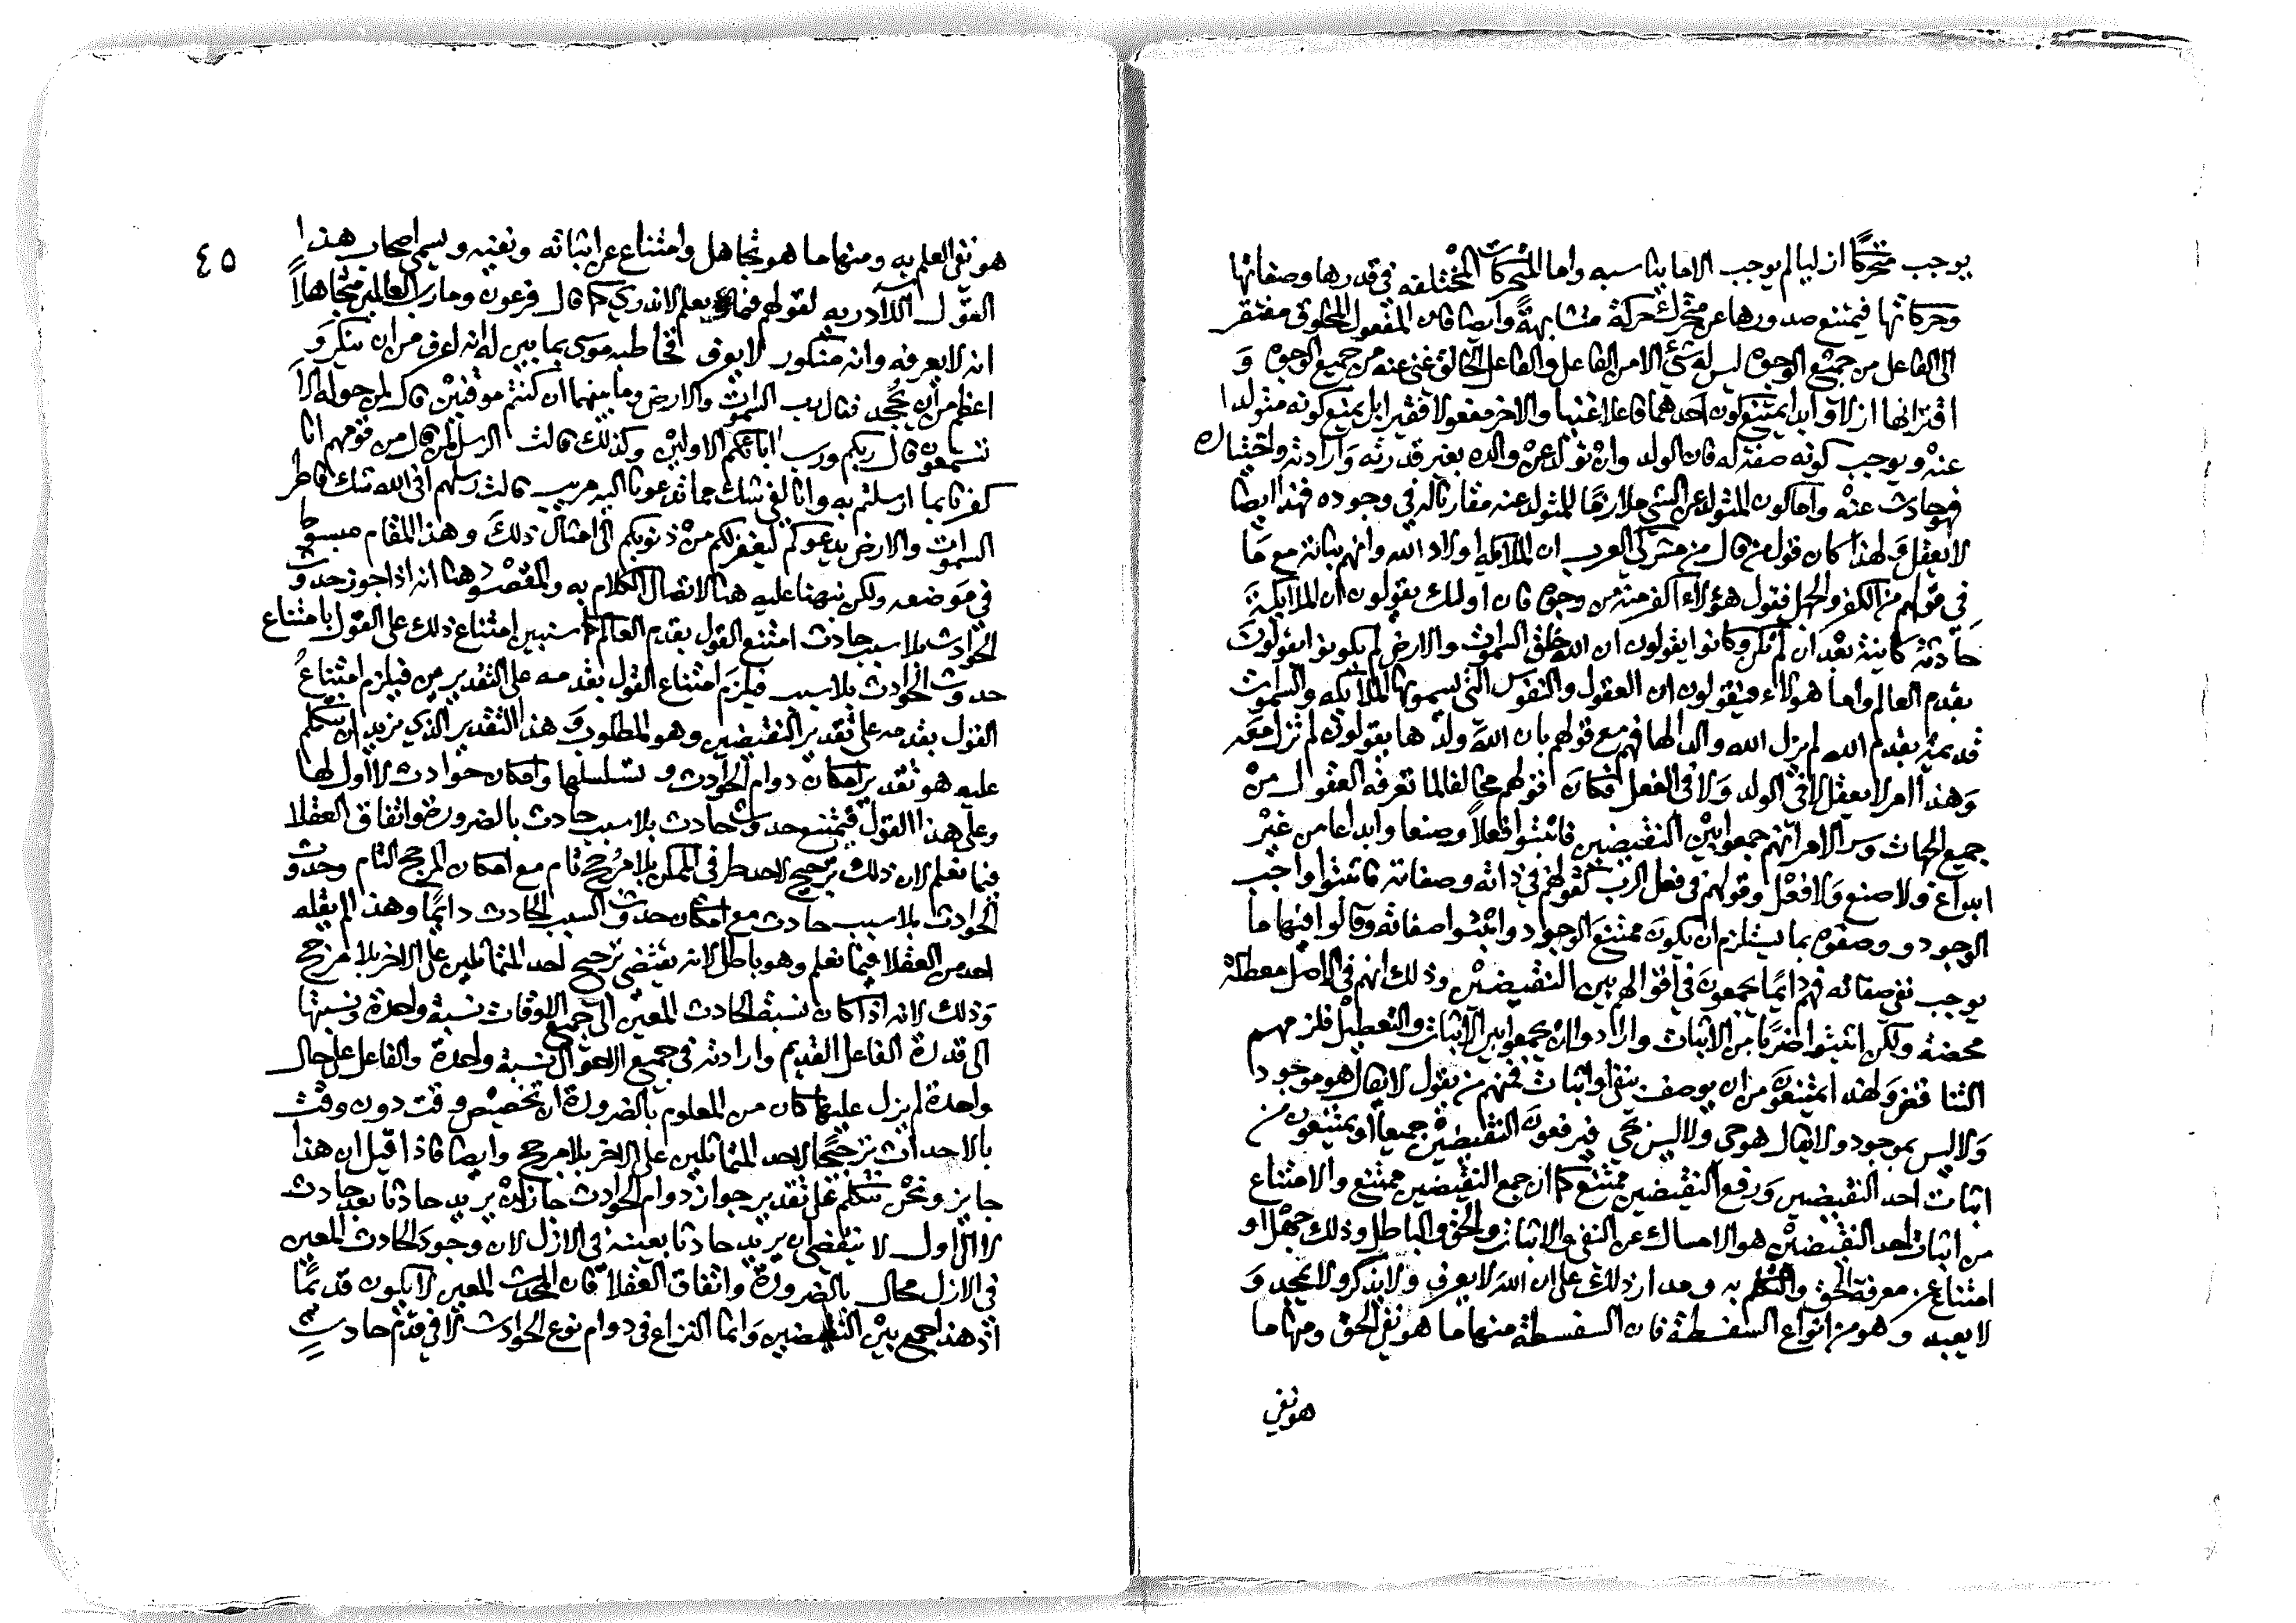 يوجب متحركا ازليا لم يوجب الا ما يناسبه واما المتحركات المختلفه في قدرها وصفاتها
وحركاتها فيمتنع صدورها عن متحرك حركة متشابهة وايضا فان المفعول المخلوق مفتقر
الى الفاعل من جميع الوجوه ليس له شئ الا من الفاعل والفاعل الخالق غني عنه من جميع الوجوه و
اقترانهما ازلا وابدا يمتنع كون احدهما فاعلا غنيا والاخر مفعولا فقيرا بل يمنع كونه متولدا
عنه ويوجب كونه صفة له فان الولد وان تولد عن والده بغير قدرته وارادته واختياره
فهو حادث عنه واما كون المتولد عن الشي ملازما للمتولد عنه مقارنا له في وجوده فهذا ايضا
لا يعقل ولهذا كان قول من قال من مشركي العرب ان الملائكه اولاد الله وانهم بناته مع ما
في قولهم من الكفر والجهل فقول هؤلاء اكفر منه من وجوه فان اولئك يقولون ان الملائكة
حادثة كائنة بعد ان لم تكن وكانوا يقولون ان الله خلق السموات والارض لم يكونوا يقولون
بقدم العالم واما هولاء فيقولون ان العقول والنفوس التي يسمونها الملائكه والسموات
قديمة بقدم الله لم يزل الله والدا لها فهم مع قولهم بان الله ولدها يقولون لم تزل معه
وهذا امر لا يعقل لا في الولد ولا في الفعل فكان قولهم مخالفا لما تعرفه العقول من
جميع الجهات وسر الامر انهم جمعوا بين النقيضين فاثبتوا فعلا وصنعا وابداعا من غير
ابداع ولا صنع ولا فعل وقولهم في فعل الرب كقولهم في ذاته وصفاته فاثبتوا واجب
الوجود ووصفوه بما يستلزم ان يكون ممتنع الوجود واثبتوا صفاته وقالوا فيها ما
يوجب نفي صفاته فهم دائما يجمعون في اقوالهم بين النقيضين وذلك انهم في الاصل معطلة
محضة ولكن اثبتوا ضربا من الاثبات وارادوا ان يجمعوا بين الاثبات والتعطيل فلزمهم
التناقض ولهذا يمتنعون من ان يوصف بنفي او اثبات فمنهم من يقول لا يقال هو موجود
ولا ليس بموجود ولا يقال هو حي ولا ليس بحي فيرفعون النقيضين جميعا او يمتنعون من
اثبات احد النقيضين ورفع النقيضين ممتنع كما ان جمع النقيضين ممتنع والامتناع
من اثبات احد النقيضين هو الامساك عن النفي والاثبات والحق والباطل وذلك جهل او
امتناع عن معرفة الحق والتكلم به ومدار ذلك على ان الله لا يعرف ولا يذكر ولا يمجد و
لا يعبد وهو من انواع السفسطة فان السفسطة منها ما هو نفي الحق ومنها ما
هو نفي
٤٥
هو نفي العلم به ومنها ما هو تجاهل وامتناع عن اثباته ونفيه ويسمى اصحاب هذا
القول اللاادريه لقولهم فيما يعلم لا ندري كما قال فرعون وما رب العالمين متجاهلا
انه لا يعرفه وانه منكور لا يعرف فخاطبه موسى بما بين له انه اعرف من ان ينكر و
اعظم من ان يجحد فقال رب السموات والارض وما بينهما ان كنتم موقنين قال لمن حوله الا
تستمعون قال ربكم ورب ابائكم الاولين وكذلك قالت الرسل لمن قال من قومهم انا
كفرنا بما ارسلتم به وانا لفي شك مما تدعونا اليه مريب قالت رسلهم افي الله شك فاطر
السموات والارض يدعوكم ليغفر لكم من ذنوبكم الى امثال ذلك وهذا المقام مبسوط
في موضعه ولكن نبهنا عليه هنا لاتصال الكلام به والمقصود هنا انه اذا جوز حدوث
الحوادث بلا سبب حادث امتنع القول بقدم العالم كما سنبين امتناع ذلك على القول بامتناع
حدوث الحوادث بلا سبب فيلزم امتناع القول بقدمه على التقديرين فيلزم امتناع
القول بقدمه على تقدير النقيضين وهو المطلوب وهذا التقدير الذي نريد ان نتكلم
عليه هو تقدير امكان دوام الحوادث وتسلسلها وامكان حوادث لا اول لها
وعلى هذا القول فيمتنع حدوث حادث بلا سبب حادث بالضرورة واتفاق العقلا
فيما نعلم لان ذلك ترجيح لاحد طرفي الممكن بلا مرجح تام مع امكان المرجح التام وحدوث
الحوادث بلا سبب حادث مع امكان حدوث السبب الحادث دائما وهذا لم يقله
احد من العقلا فيما نعلم وهو باطل لانه يقتضي ترجيح احد المتماثلين على الاخر بلا مرجح
وذلك لانه اذا كان نسبة الحادث المعين الى جميع الاوقات نسبة واحدة ونسبتها
الى قدرة الفاعل القديم وارادته في جميع الاحوال نسبة واحدة والفاعل على حال
واحدة لم يزل عليها كان من المعلوم بالضرورة ان تخصيص وقت دون وقت
بالاحداث ترجيحا لاحد المتماثلين على الاخر بلا مرجح وايضا فاذا قيل ان هذا
جايز ونحن نتكلم على تقدير جواز دوام الحوادث جاز انه يريد حادثا بعد حادث
لا الى اول لا يقتضي ان يريد حادثا بعينه في الازل لان وجود الحادث المعين
في الازل محال بالضرورة واتفاق العقلا فان المحدث المعين لا يكون قديما
اذ هذا جمع بين النقيضين وانما النزاع في دوام نوع الحوادث لا في قدم حادث